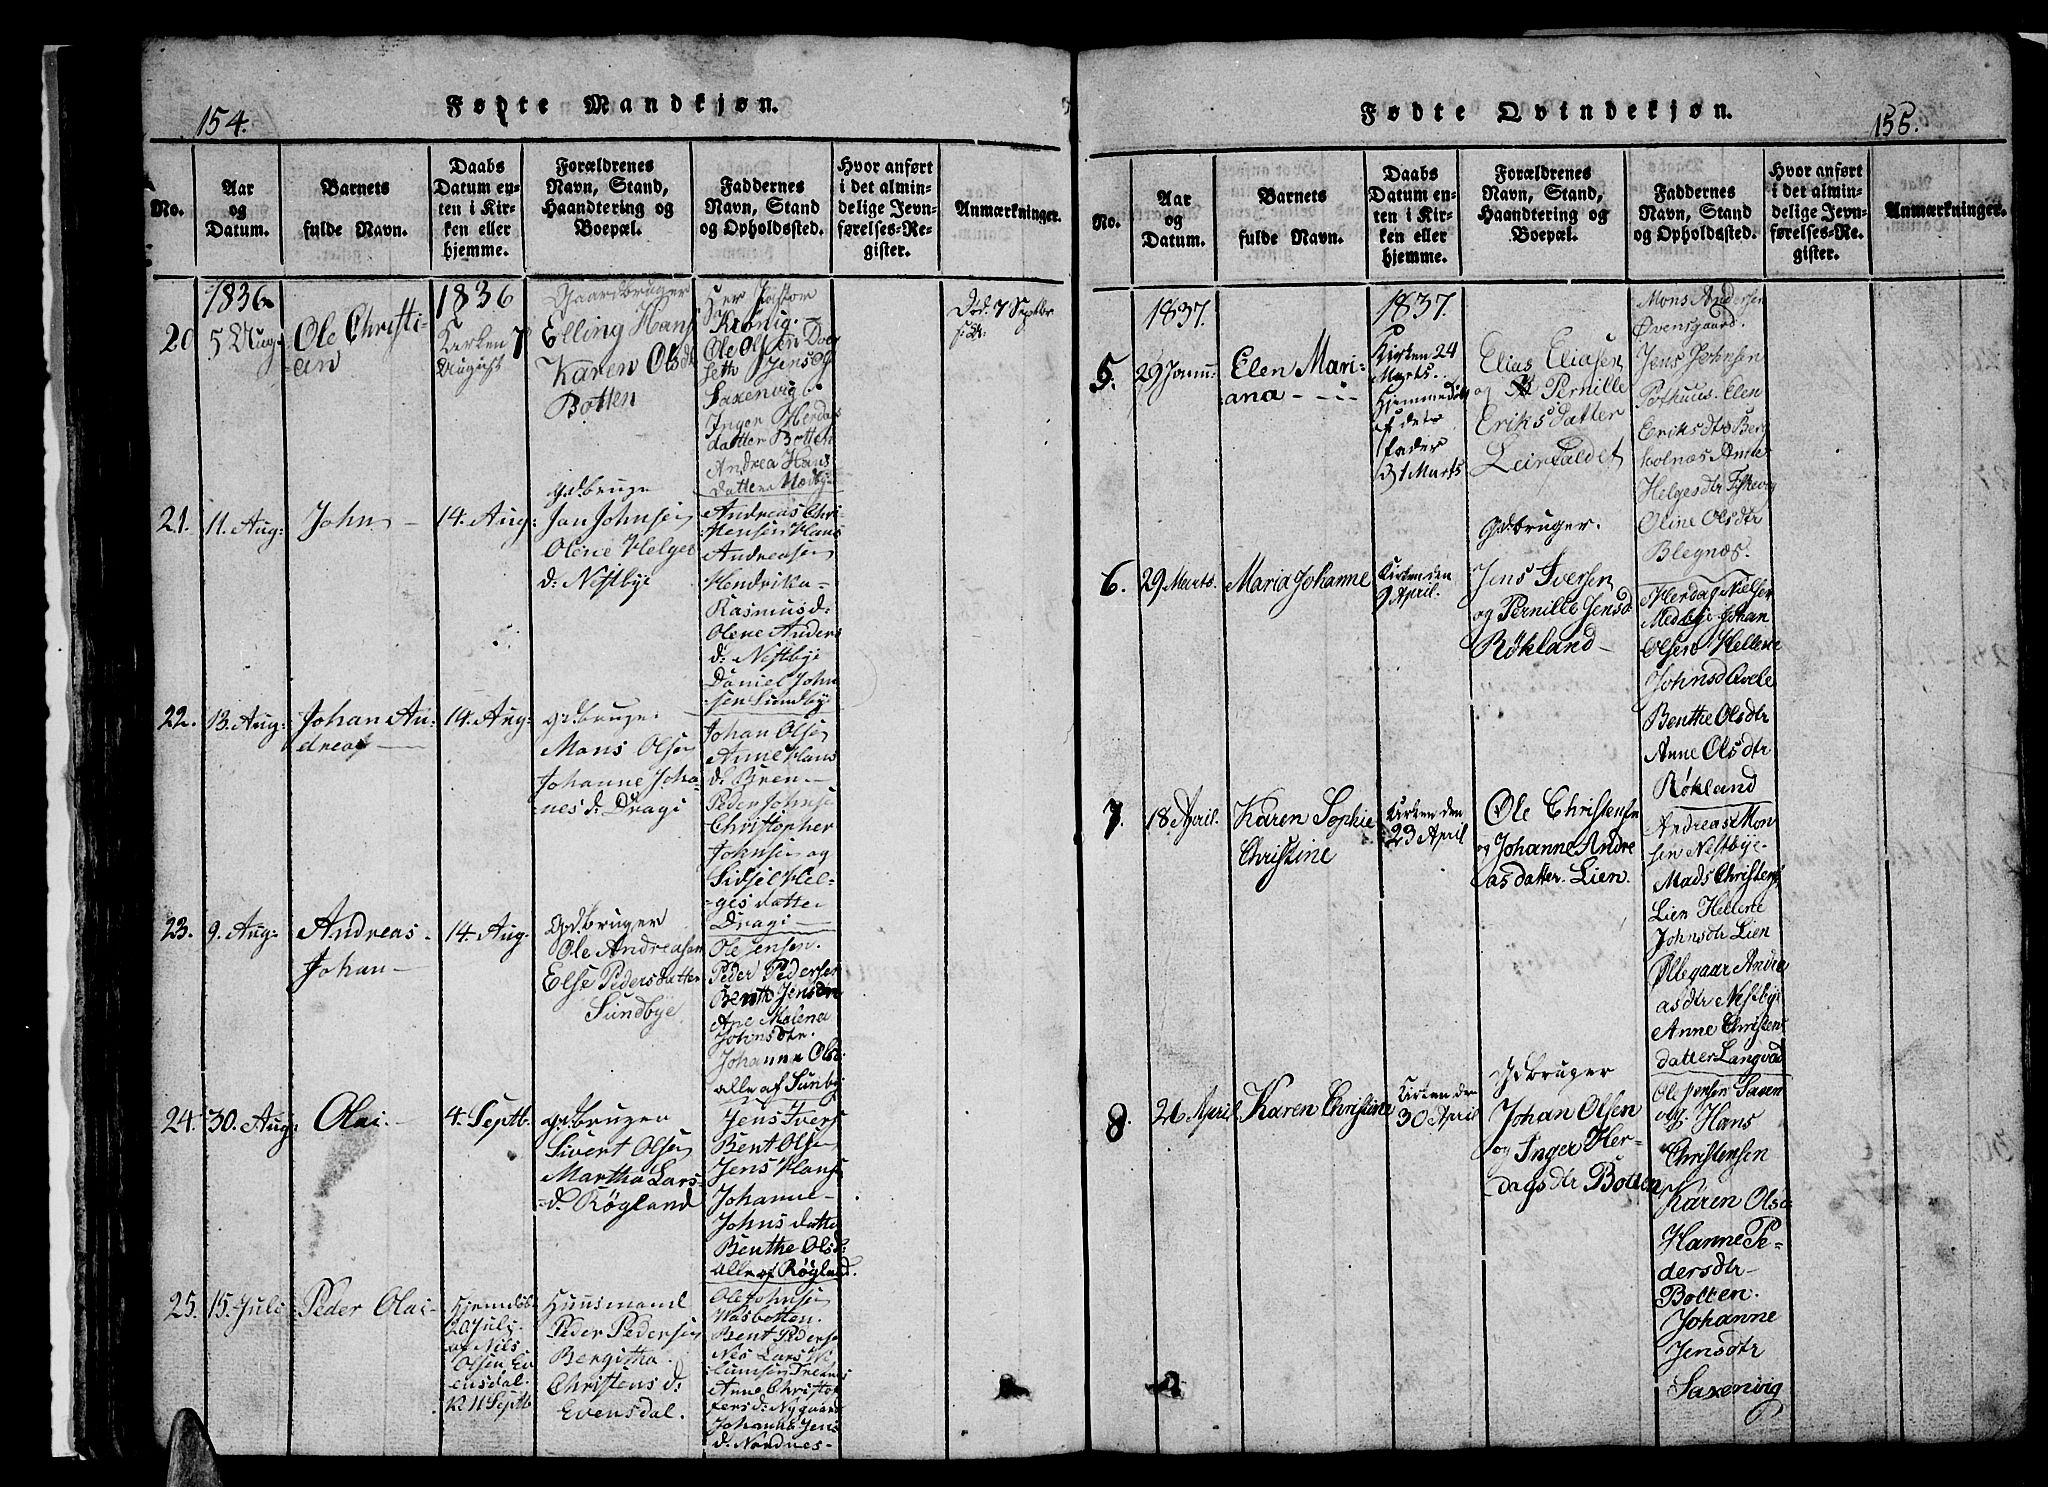 154.
Fødte Mandkjøn.
No.
Aar
og
Datum.
Barnets
fulde Navn.
Daabs
Datum en-
ten i Kir-
ken eller
hjemme.
Forældrenes
Navn, Stand,
Haandtering og
Boepæl.
Faddernes
Navn, Stand
og Opholdssted.
Hvor anført
i det almin-
delige Jevn-
førelses-Re-
gister.
Anmærkninger.
20
1836
5 Aug:
Ole Christi-
an
1836
Kirken 7
August
Gaardbruger
Elling Hans
Karen Olsdt
Botten
Her Pastor
Kionig
Ole Olsen
Jens
Saxenvig
Inger Herdags
datter Botten
Andrea Hans
datter
Død 7 Septbr
21.
11. Aug:
John
14. Aug:
Gdbruge
Jan Johnsen
Olene Helges
d: Nestbye
Andreas Chri-
stensen Hans
Andreasen
Hendrika
Rasmusd:
Olene Anders
d: Nestbye
Daniel John
sen Sundbye
22.
13. Aug:
Johan An-
dreas
14. Aug:
gdbruge:
Mons Olsen
Johanne Joha
nesd: Dragi
Johan Olsen
Anne Hans
d: Bren
Peder Johnse
Christopher
Johnsen og
Sidsel Hel-
gis datter
Dragi
23.
9. Aug:
Andreas
Johan
14. Aug
Gdbruger
Ole Andreasen
Else Pedersdatter
Sundbye
Ole Jensen.
Peder Pedersen
Benth Jensdtr
Ane Malena
Johnsdtr.
Johanna Olsd
alle af Sunby
24.
30. Aug:
Olai.
4. Septb.
gdbruger
Sivert Olsen
Martha Lars-
d. Røgland
Jens Ivers
Bent Olsen
Jens Hans
Johanne
Johnsdatte
Benthe Olsd:
alle af Røgland.
25.
15. Juli
Peder Olai
Hjemdøb
20 July
af Nils
Olsen Ev
ensdal.
K. 11 Septb
Huusmand
Peder Pedersen
Bergitha
Christensd:
Evensdal.
Ole Johnsen
Wasbotten.
Bent Pederse
Nes Lars
Anne Christo
fersd: Nygaard
Johanna Jens
d. Nordnes
155.
Fødte Qvindekjøn.
No.
Aar
og
Datum.
Barnets
fulde Navn.
Daabs
Datum en-
ten i Kir-
ken eller
hjemme.
Forældrenes
Navn, Stand,
Haandtering og
Boepæl.
Faddernes
Navn, Stand
og Opholdssted.
Hvor anført
i det almin-
delige Jevn-
førelses-Re-
gister.
Anmærkninger.
5.
1837.
29 Janu:
Elen Mari-
ana
1837.
Kirken 24
Marts.
Hjemmedøbt
af dets
fader
31 Marts
Elias Eliasen
og Pernille
Eriksdatter
Leirfaldet
Mons Andersen
Øvensgaard.
Jens Jensen
Pothuus. Elen
Eriksdtr Berg
holnæs Anne
Helgesdtr Fiskevog
Oline Olsdtr
Blegnæs.
6.
29 Marts.
Maria Johanne
Kirken den
9 April.
Gdbruger.
Jens Iversen
og Pernille Jensd
Røkland
Herdag Nielsen
Medbye Johan
Olsen Hellene
Johnsd Qvele
Benthe Olsdtr
Anne Olsdtr
Røkland
7.
18 April.
Karen Sophie
Christine
Kirken den
23 April
Ole Christensen
og Johanne Andre
asdatter. Lien.
Andreas Mon
sen Nestbye
Mads Christens
Lien Hellene
Johnsdtr Lien
Ollegaar Andre
asdtr Nestbye
Anne Christens
datter Langvad
8.
26 April.
Karen Christine
Kirken den
30 April
Gdbruger
Johan Olsen
og Inger Her-
dagsdtr Botten
Ole Jensen Saxen
vig. Hans
Christensen
Karen Olsd:
Hanne Pe-
dersdtr
Botten.
Johanne
Jensdtr
Saxenvig